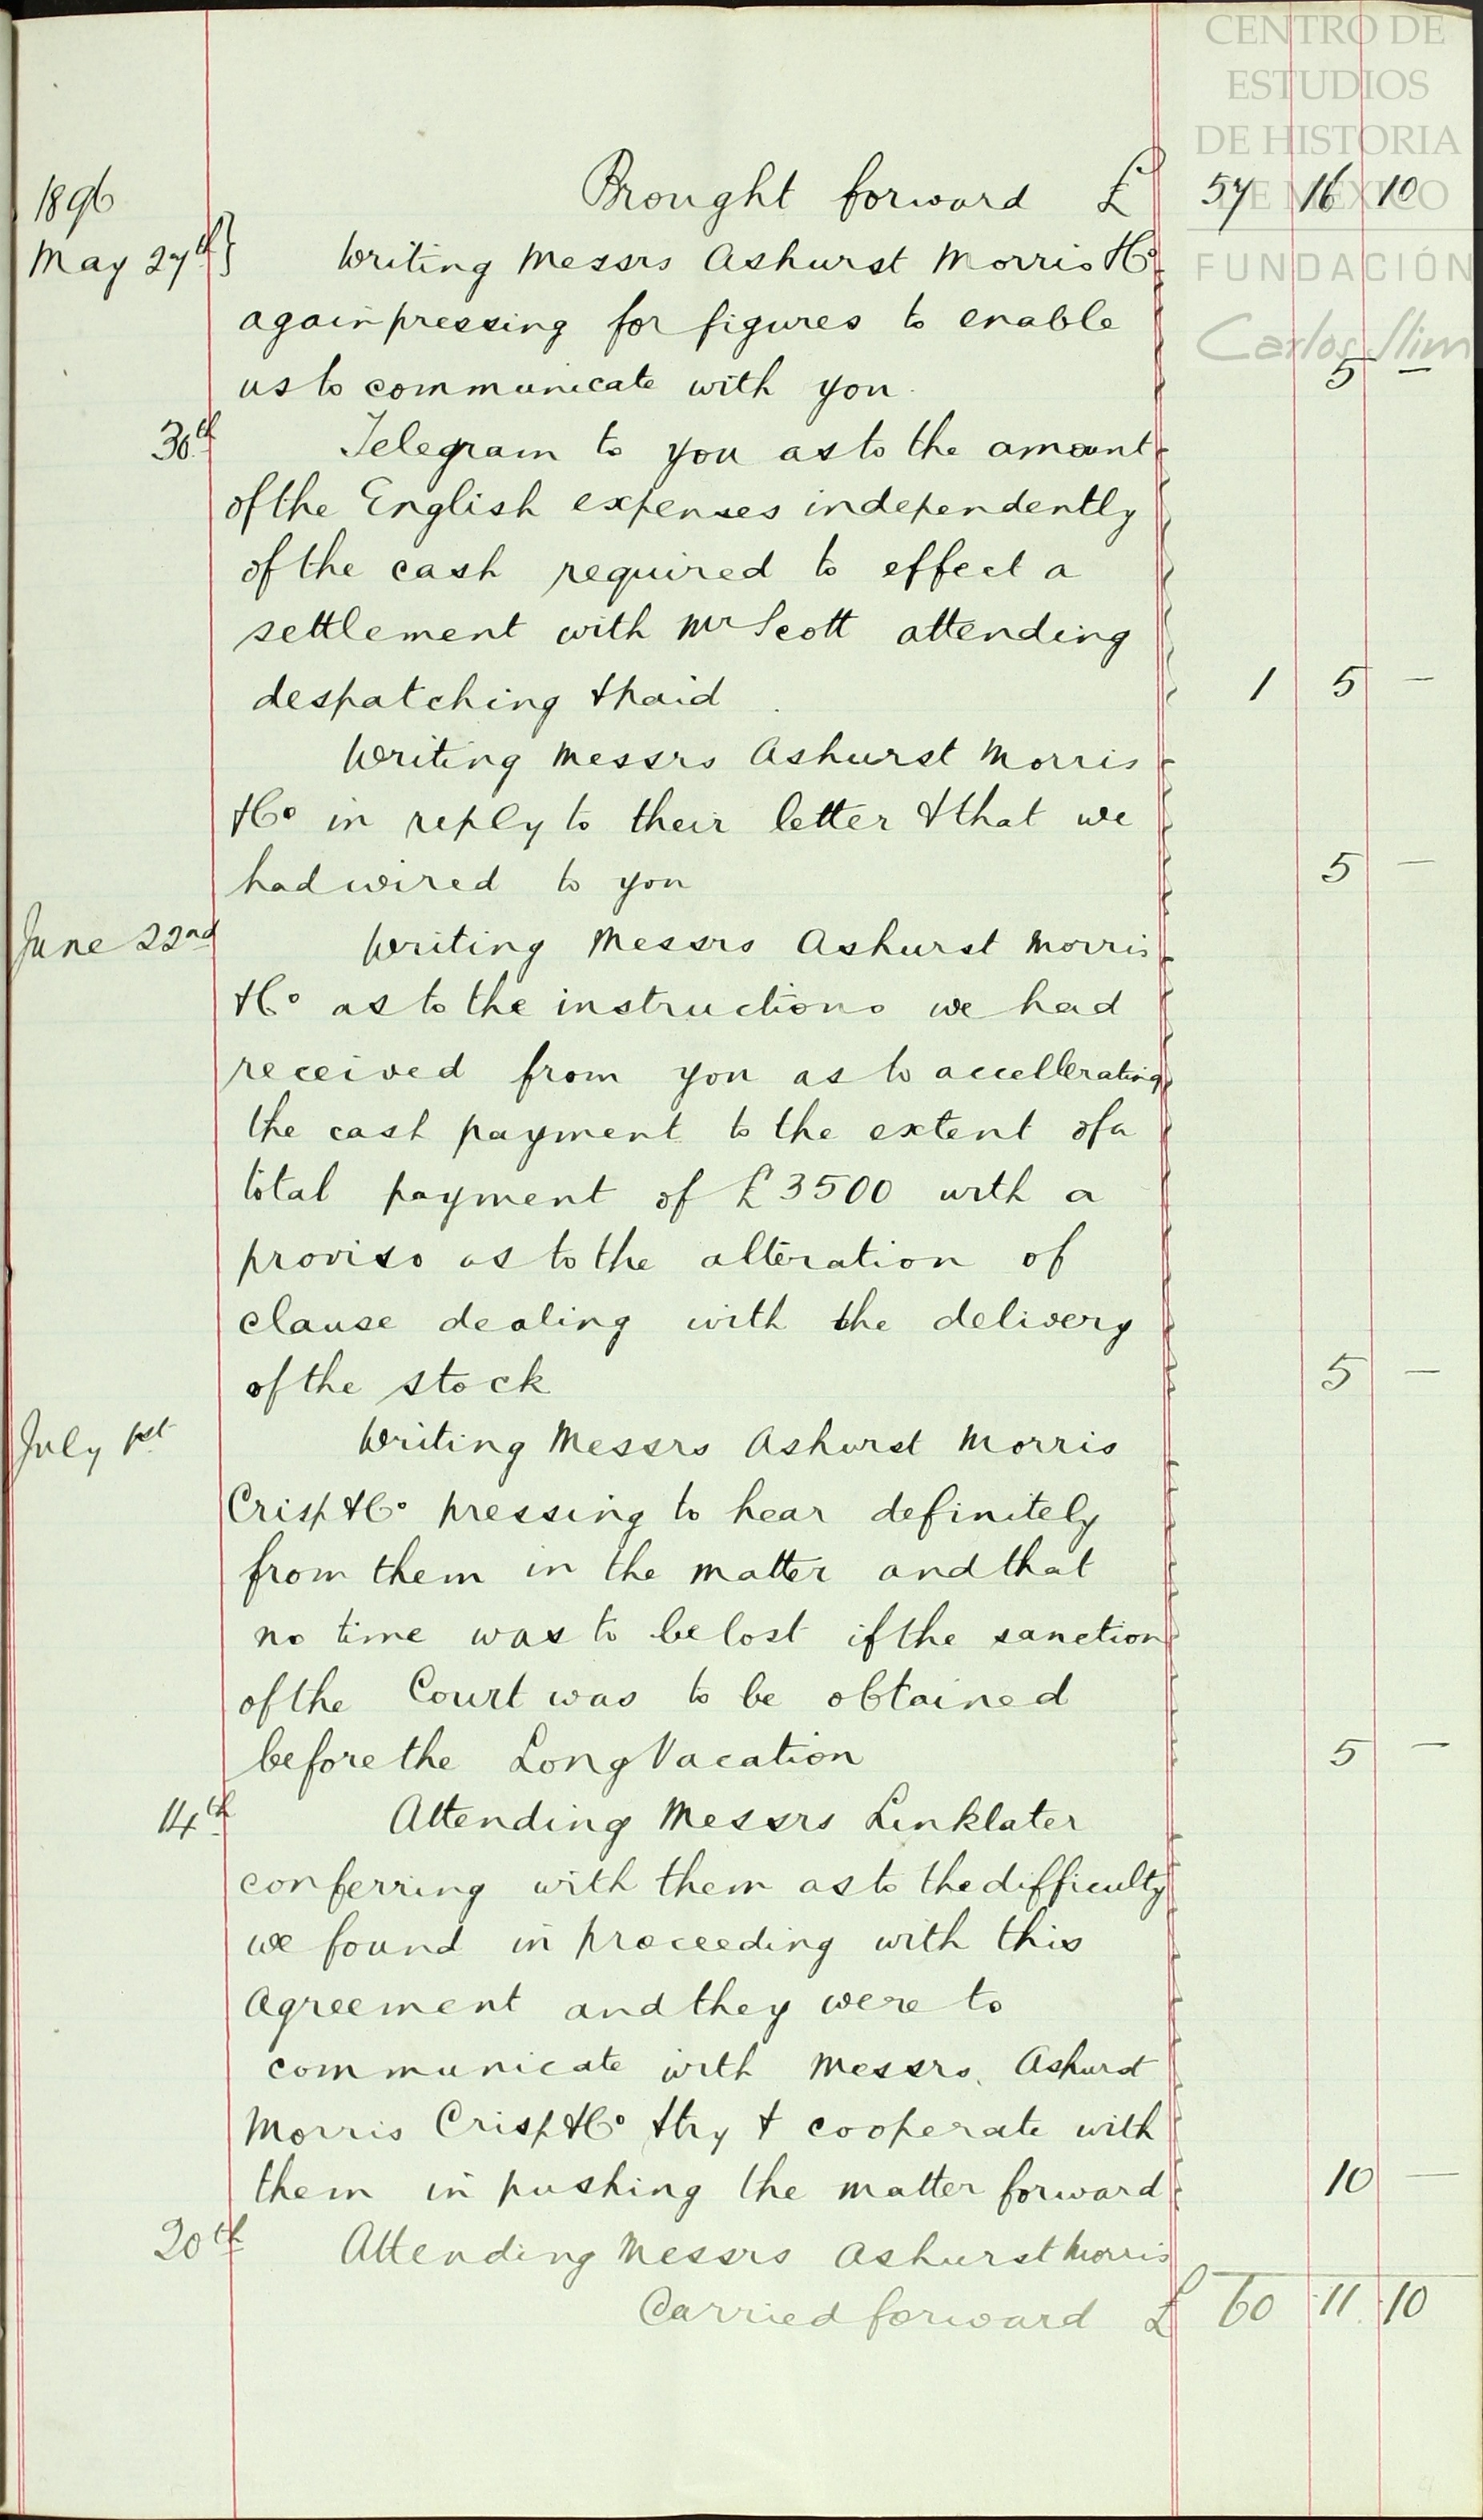 CENTRO DE
ESTUDIOS
DE HISTORIA
DE MÉXICO
FUNDACIÓN
Carlos Slim
1896
Brought forward £ 57 16 10
May 27th} Writing Messrs Ashurst Morris & Co
again pressing for figures to enable
us to communicate with you. 5 —
30th Telegram to you as to the amount
of the English expenses independently
of the cash required to effect a
settlement with Mr Scott attending
despatching & paid 1 5 —
Writing Messrs Ashurst Morris
& Co in reply to their letter & that we
had wired to you 5 —
June 22nd Writing Messrs Ashurst Morris
& Co as to the instructions we had
received from you as to accellerating
the cash payment to the extent of a
total payment of £3500 with a
proviso as to the alteration of
clause dealing with the delivery
of the stock 5 —
July 1st Writing Messrs Ashurst Morris
Crisp & Co pressing to hear definitely
from them in the matter and that
no time was to be lost if the sanction
of the Court was to be obtained
before the Long Vacation 5 —
14th Attending Messrs Linklater
conferring with them as to the difficulty
we found in proceeding with this
Agreement and they were to
communicate with Messrs. Ashurst
Morris Crisp & Co & try & cooperate with
them in pushing the matter forward 10 —
20th Attending Messrs Ashurst Morris
Carried forward £ 60 11 10